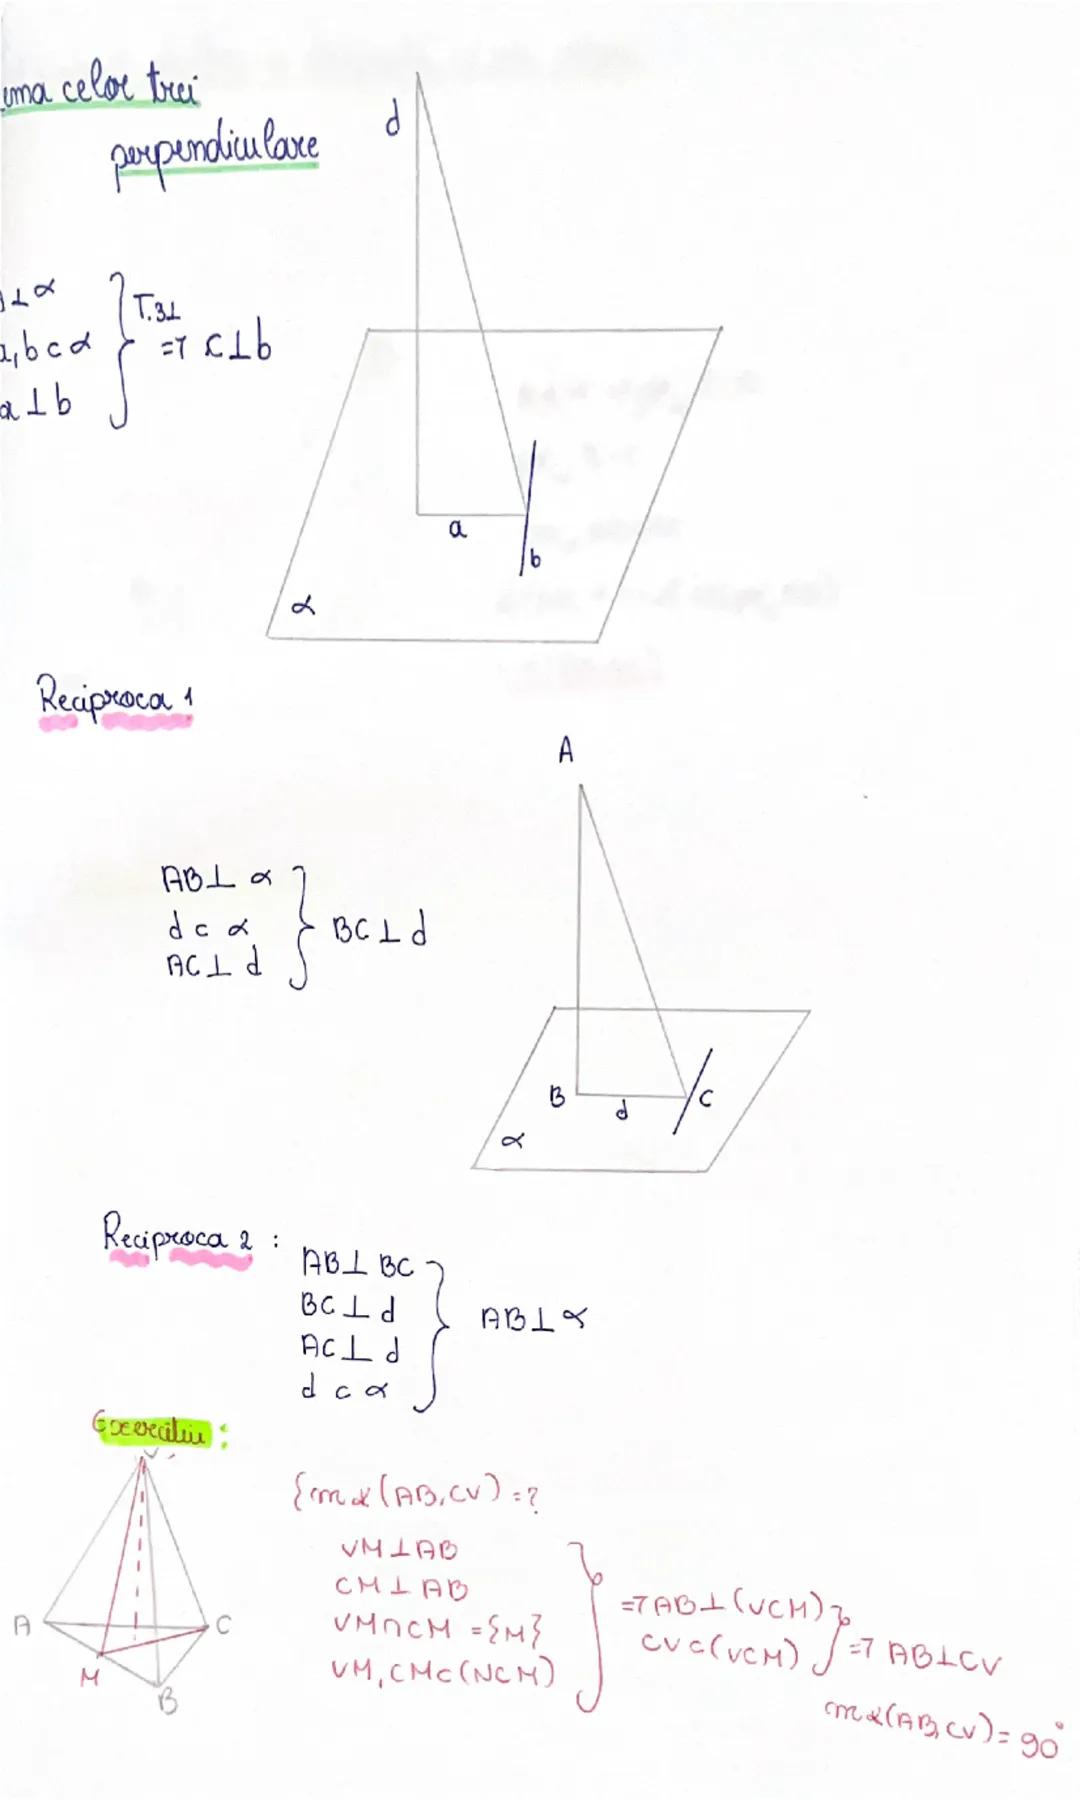 ema celor trei
perpendiculare
d
⊥ α
a,b ⊂ α
a ⊥ b
T.3⊥
=> c⊥b
a
b
α
Reciproca 1
A
AB⊥ α
d ⊂ α
AC⊥ d
BC⊥d
B
d
C
α
Reciproca 2 :
AB⊥ BC
BC⊥ d
AC⊥ d
d ⊂ α
AB⊥α
Exercitiu :
V
A
C
M
B
{m∢(AB,CV)=?
VM⊥AB
CM⊥AB
VM∩CM ={M}
VM,CM⊂(NCM)
=> AB⊥(VCM)
CV⊂(VCM)
=> AB⊥CV
m∢(AB,CV)=90°